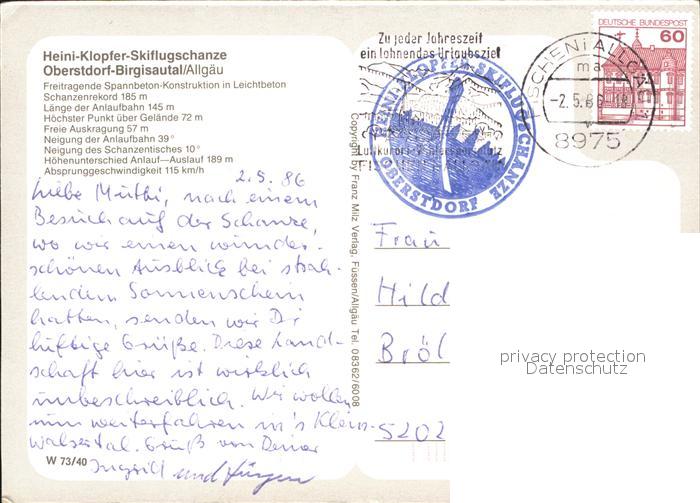 Heini-Klopfer-Skiflugschanze
Oberstdorf-Birgisautal/Allgäu
Freitragende Spannbeton-Konstruktion in Leichtbeton
Schanzenrekord 185 m
Länge der Anlaufbahn 145 m
Höchster Punkt über Gelände 72 m
Freie Auskragung 57 m
Neigung der Anlaufbahn 39°
Neigung des Schanzentisches 10°
Höhenunterschied Anlauf—Auslauf 189 m
Absprunggeschwindigkeit 115 km/h
2.5.86
Liebe Mutti, nach einem
Besuch auf der Schanze,
wo wir einen wunder-
schönen Ausblick bei strah-
lendem Sonnenschein
hatten, senden wir Dir
Grüße. Diese Land-
schaft hier ist wirklich
unbeschreiblich. Wir wollen
nun weiterfahren in's Klein-
walsertal. Gruß von Deiner
Ingrid und Jürgen
W 73/40
Copyright by Franz Milz Verlag, Füssen/Allgäu Tel. 08362/6008
Zu jeder Jahreszeit
ein lohnendes Urlaubsziel
HEINI-KLOPFER-SKIFLUGSCHANZE
OBERSTDORF
FISCHEN i ALLGÄU
ma
-2.5.86-18
8975
DEUTSCHE BUNDESPOST
60
Frau
Hild
Bröl
5202
privacy protection
Datenschutz